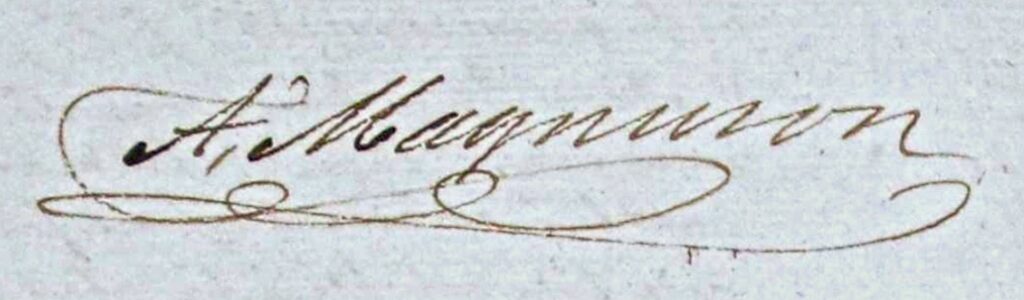 A. Magnuson